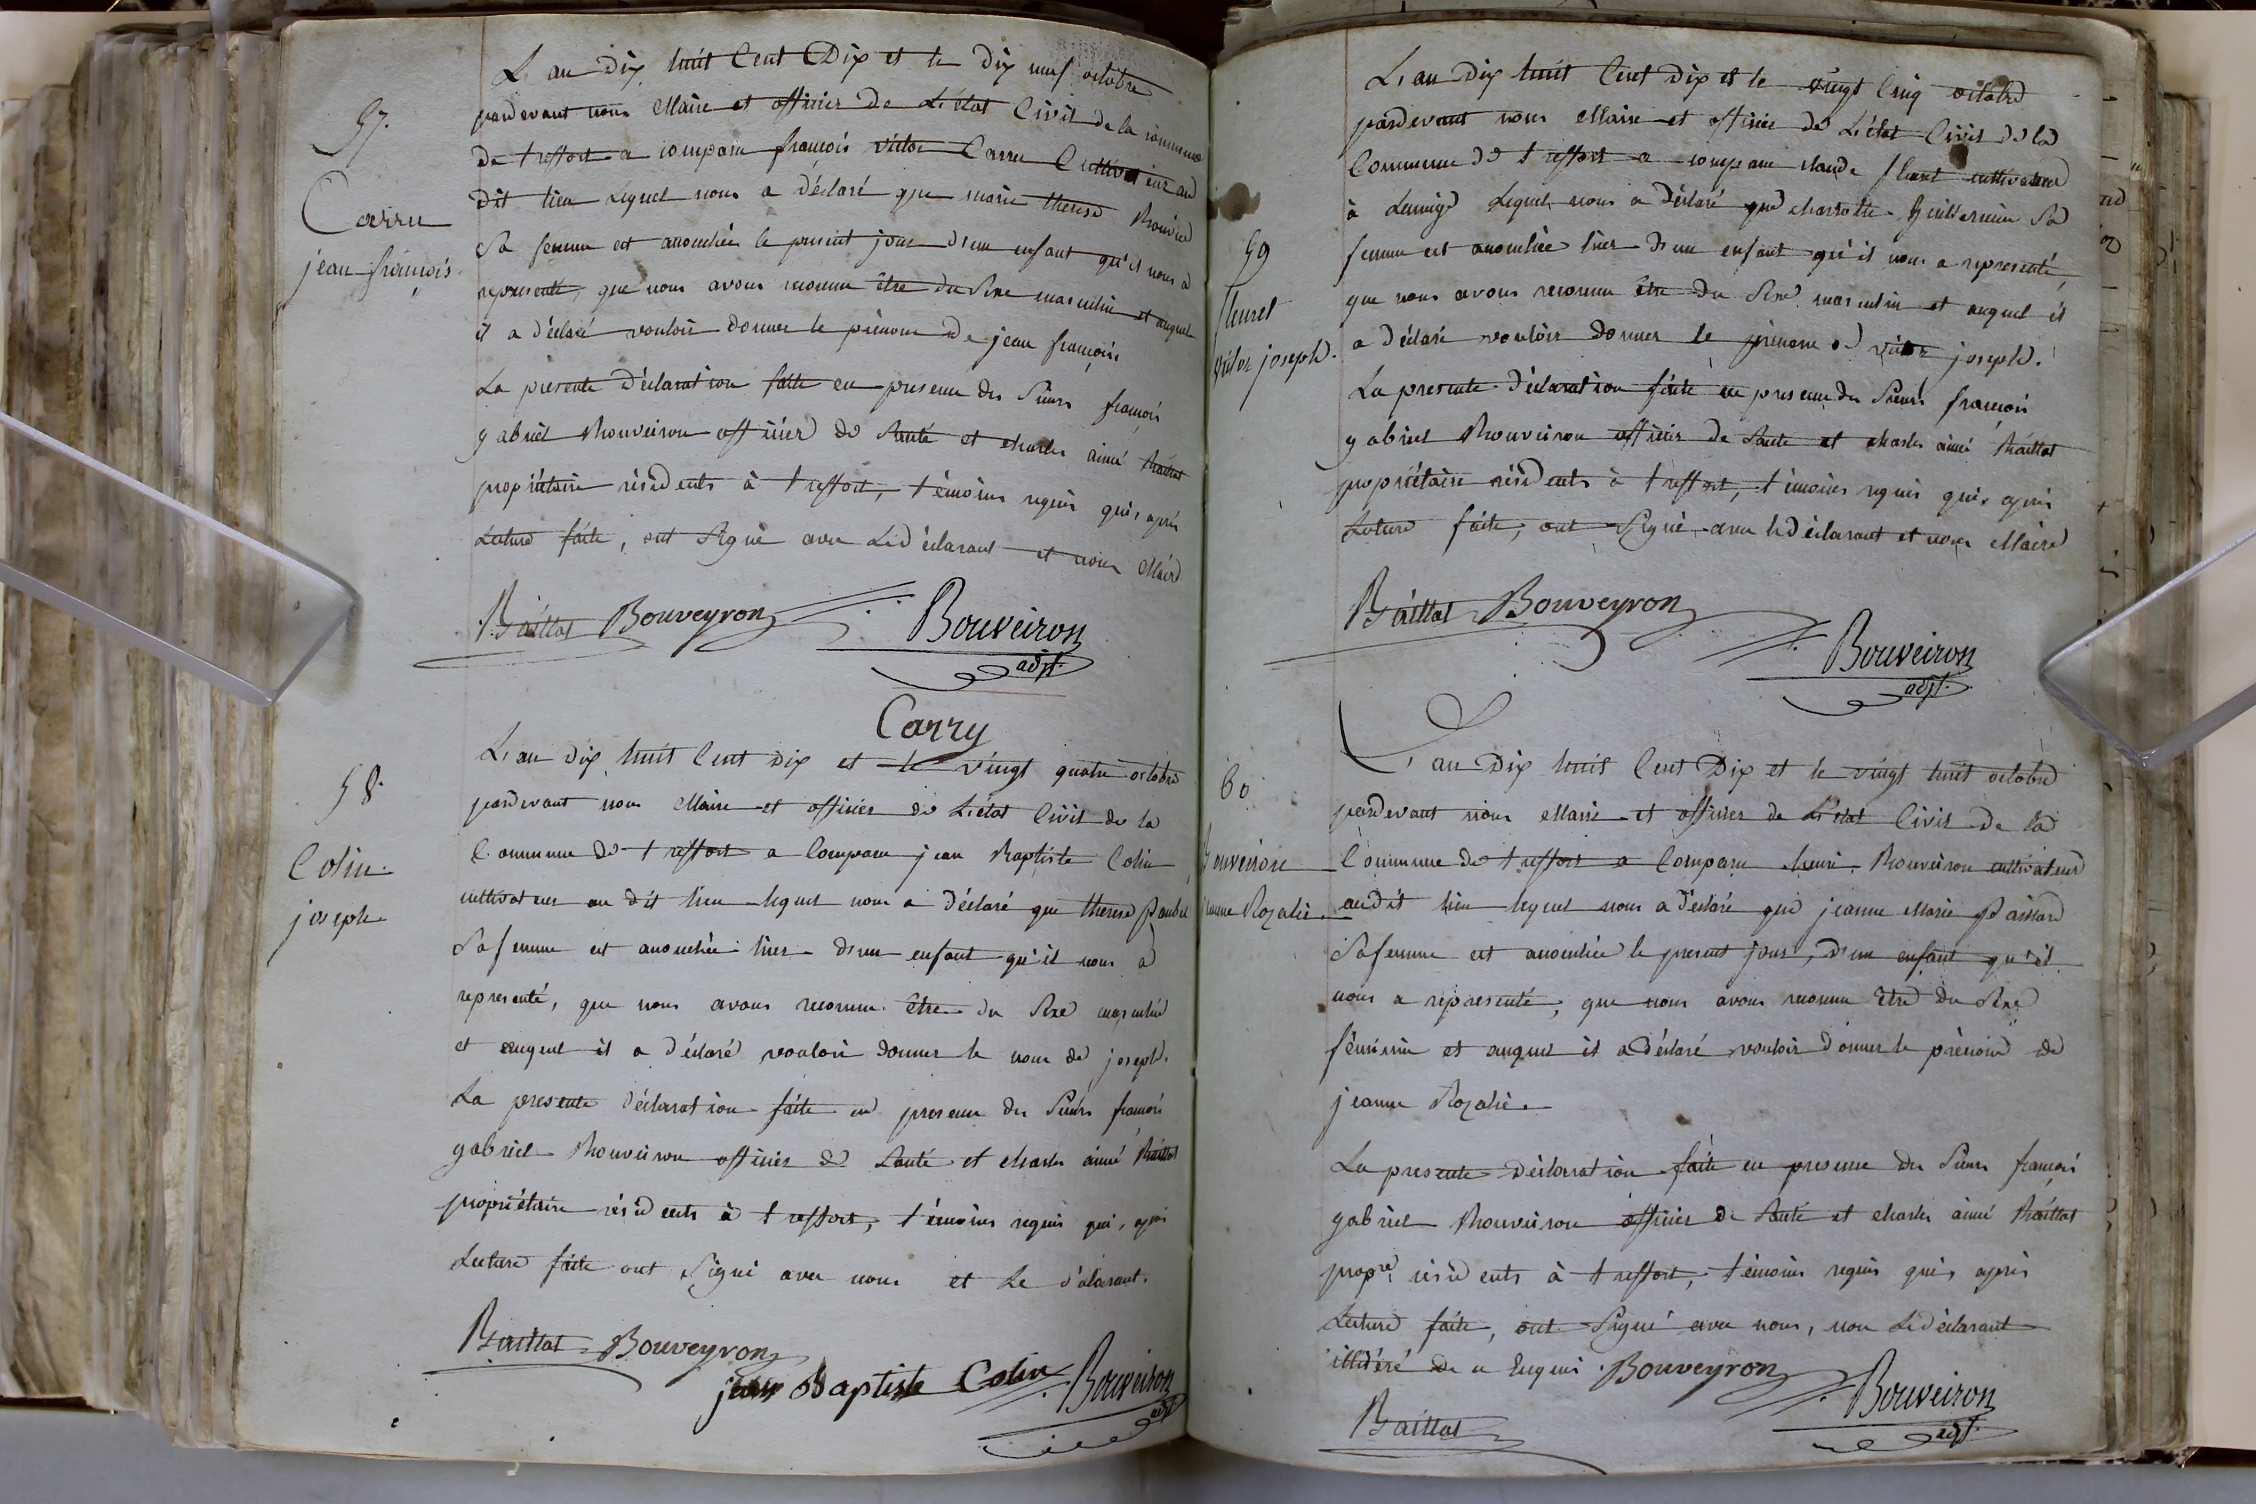 57.
Carru
jean françois
L'an dix huit Cent Dix et le dix neuf octobre
pardevant nous Maire et officier de L'état Civil de la commune
de treffort a comparu françois victor Carru Cultivateur au
dit lieu Lequel nous a déclaré que marie therese
Sa femme est accouchée le present jour d'un enfant qu'il nous a
representé, que nous avons reconnu être du Sexe masculin et auquel
il a déclaré vouloir donner le prénom de jean françois
La présente déclaration faite en presence des Sieurs françois
gabriel Bouveiron officier de Santé et charles aimé Baillat
propriétaire résidents à treffort, témoins requis qui, après
Lecture faite, ont Signé avec Le déclarant et nous Maire
Baillat Bouveyron Bouveiron
adjt.
Carry
58.
Colin
joseph
L'an dix huit Cent Dix et le vingt quatre octobre
pardevant nous Maire et officier de L'état Civil de la
Commune de treffort a Comparu jean Baptiste Colin
cultivateur au dit lieu lequel nous a déclaré que therese
Sa femme est accouchée hier d'un enfant qu'il nous a
representé, que nous avons reconnu être du Sexe masculin
et auquel il a déclaré vouloir donner le nom de joseph.
La presente déclaration faite en presence des Sieurs françois
gabriel Bouveiron officier de Santé et charles aimé Baillat
propriétaire résidents à treffort, témoins requis qui, après
Lecture faite ont Signé avec nous et Le déclarant.
Baillat Bouveyron
jean Baptiste Colin Bouveiron
adjt
59
fleuret
victor joseph.
L'an Dix huit Cent Dix et le vingt Cinq octobre
pardevant nous Maire et officier de L'état Civil de la
Commune de treffort a comparu claude fleuret cultivateur
à Lequel nous a déclaré que charlotte guillermin Sa
femme est accouchée hier d'un enfant qu'il nous a representé,
que nous avons reconnu être du Sexe masculin et auquel il
a déclaré vouloir donner le prénom de victor joseph.
La presente déclaration faite en presence des Sieurs françois
gabriel Bouveiron officier de Santé et charles aimé Baillat
propriétaire résidents à treffort, témoins requis qui, après
Lecture faite, ont Signé avec le déclarant et nous Maire
Baillat Bouveyron
Bouveiron
adjt.
60
Bouveiron
jeanne Rozalie
L'an Dix huit Cent Dix et le vingt huit octobre
pardevant nous Maire et officier de L'état Civil de la
Commune de treffort a Comparu henri Bouveiron cultivateur
audit lieu lequel nous a déclaré que jeanne Marie Paillard
Sa femme est accouchée le present jour, d'un enfant qu'il
nous a representé, que nous avons reconnu être du Sexe
féminin et auquel il a déclaré vouloir donner le prénom de
jeanne Rozalie.
La presente déclaration faite en presence des Sieurs françois
gabriel Bouveiron officier de Santé et charles aimé Baillat
propre. résidents à treffort, témoins requis qui, après
Lecture faite, ont Signé avec nous, non Le déclarant
illitéré de ce Enquis. Bouveyron Bouveiron
Baillat adjt.